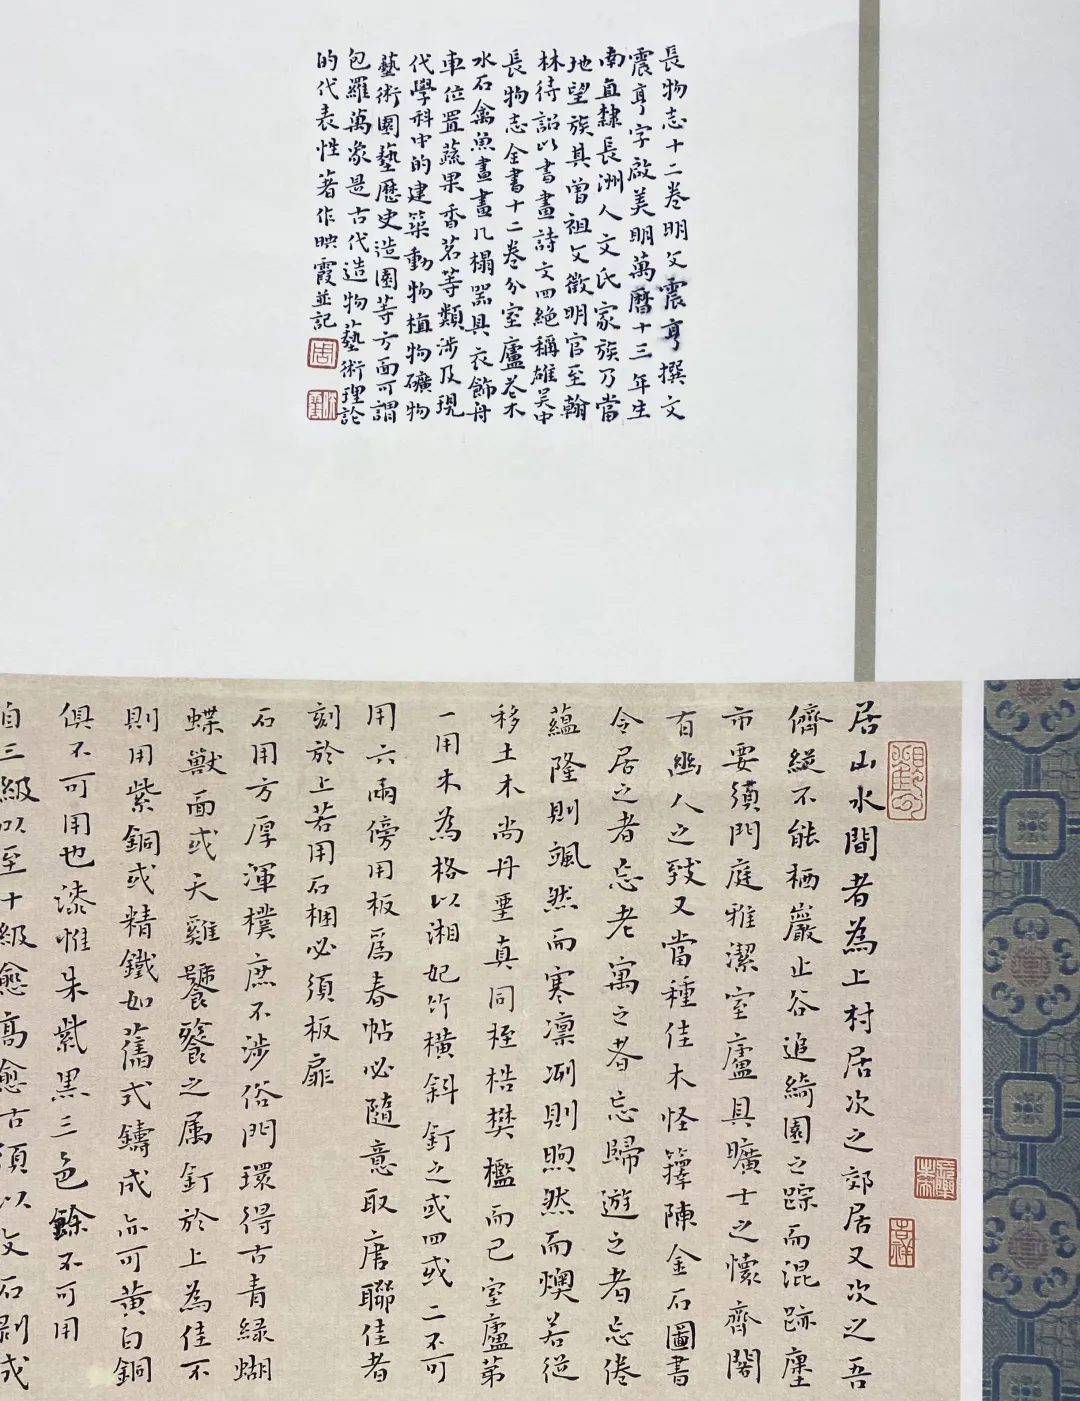 長物志十二卷明文震亨撰文
震亨字啟美明萬曆十三年生
南直隸長洲人文氏家族乃當
地望族其曾祖文徵明官至翰
林待詔以書畫詩文四絕稱雄吴中
長物志全書十二卷分室廬花木
水石禽魚書畫几榻器具衣飾舟
車位置蔬果香茗等類涉及現
代學科中的建築動物植物礦物
藝術園藝歷史造園等方面可謂
包羅萬象是古代造物藝術理論
的代表性著作映霞並記
居山水間者為上村居次之郊居又次之吾
儕縱不能栖巖止谷追綺園之踪而混跡廛
市要須門庭雅潔室廬具曠士之懷齋閣
有幽人之致又當種佳木怪籜陳金石圖書
令居之者忘老寓之者忘歸遊之者忘倦
蘊隆則颯然而寒凜冽則煦然而燠若徒
移土木尚丹堊真同桎梏樊檻而已室廬第
一用木為格以湘妃竹橫斜釘之或四或二不可
用六兩傍用板為春帖必隨意取唐聯佳者
刻於上若用石梱必須板扉
石用方厚渾樸庶不涉俗門環得古青綠蝴
蝶獸面或天雞饕餮之屬釘於上為佳不
則用紫銅或精鐵如舊式鑄成亦可黃白銅
俱不可用也漆惟朱紫黑三色餘不可用
自三級以至十級愈高愈古須以文石剥成